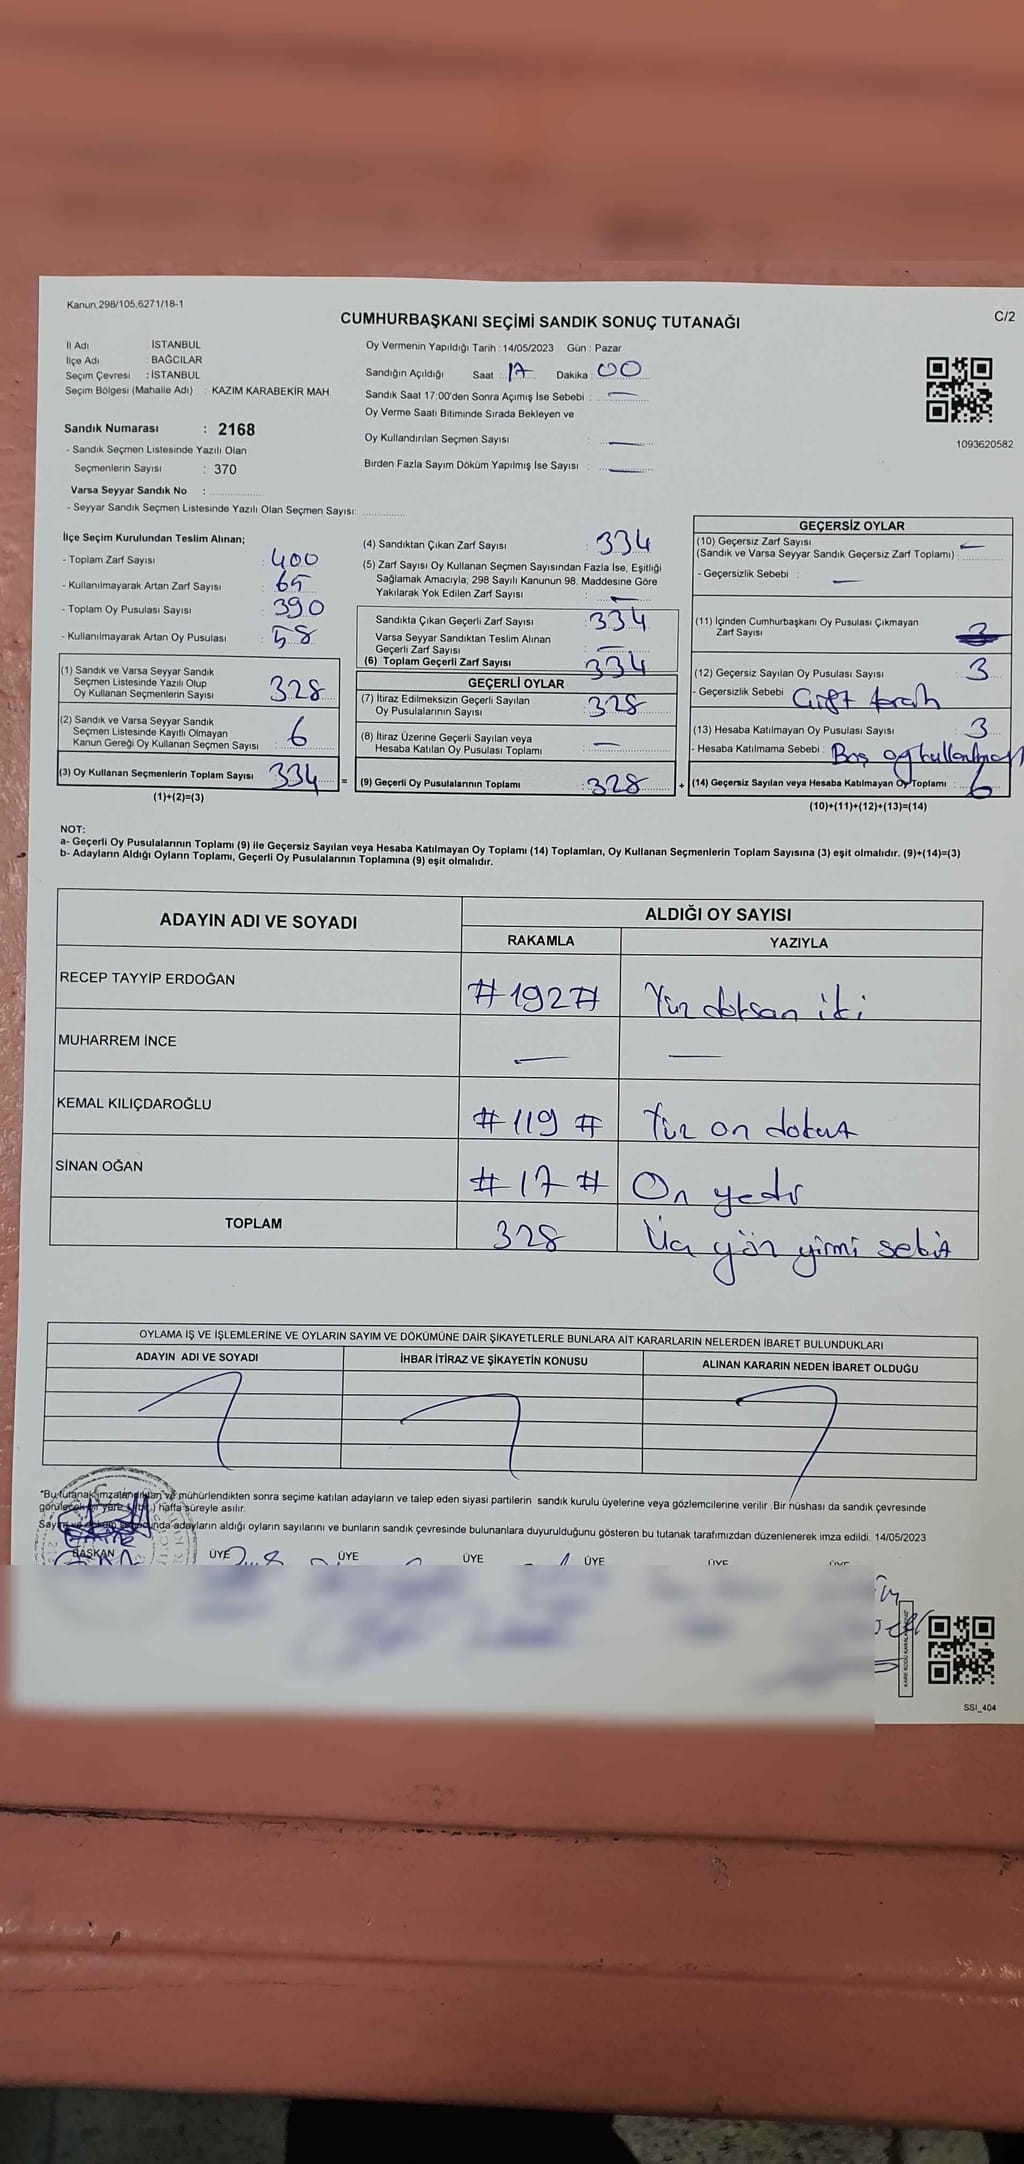 Kanun;298/105;6271/18-1
C/2
CUMHURBAŞKANI SEÇİMİ SANDIK SONUÇ TUTANAĞI
İl Adı : İSTANBUL
İlçe Adı : BAĞCILAR
Seçim Çevresi : İSTANBUL
Seçim Bölgesi (Mahalle Adı) : KAZIM KARABEKİR MAH.
Sandık Numarası : 2168
- Sandık Seçmen Listesinde Yazılı Olan
Seçmenlerin Sayısı : 370
Varsa Seyyar Sandık No :
- Seyyar Sandık Seçmen Listesinde Yazılı Olan Seçmen Sayısı:
Oy Vermenin Yapıldığı Tarih : 14/05/2023 Gün : Pazar
Sandığın Açıldığı Saat : 17 Dakika : 00
Sandık Saat 17:00'den Sonra Açımış İse Sebebi : —
Oy Verme Saati Bitiminde Sırada Bekleyen ve
Oy Kullandırılan Seçmen Sayısı : —
Birden Fazla Sayım Döküm Yapılmış İse Sayısı : —
1093620582
İlçe Seçim Kurulundan Teslim Alınan;
- Toplam Zarf Sayısı : 400
- Kullanılmayarak Artan Zarf Sayısı : 65
- Toplam Oy Pusulası Sayısı : 390
- Kullanılmayarak Artan Oy Pusulası : 58
(1) Sandık ve Varsa Seyyar Sandık
Seçmen Listesinde Yazılı Olup
Oy Kullanan Seçmenlerin Sayısı : 328
(2) Sandık ve Varsa Seyyar Sandık
Seçmen Listesinde Kayıtlı Olmayan
Kanun Gereği Oy Kullanan Seçmen Sayısı : 6
(3) Oy Kullanan Seçmenlerin Toplam Sayısı : 334 =
(1)+(2)=(3)
(4) Sandıktan Çıkan Zarf Sayısı : 334
(5) Zarf Sayısı Oy Kullanan Seçmen Sayısından Fazla İse, Eşitliği
Sağlamak Amacıyla; 298 Sayılı Kanunun 98. Maddesine Göre
Yakılarak Yok Edilen Zarf Sayısı : —
Sandıkta Çıkan Geçerli Zarf Sayısı : 334
Varsa Seyyar Sandıktan Teslim Alınan
Geçerli Zarf Sayısı : —
(6) Toplam Geçerli Zarf Sayısı : 334
GEÇERLİ OYLAR
(7) İtiraz Edilmeksizin Geçerli Sayılan
Oy Pusulalarının Sayısı : 328
(8) İtiraz Üzerine Geçerli Sayılan veya
Hesaba Katılan Oy Pusulası Toplamı : —
(9) Geçerli Oy Pusulalarının Toplamı : 328 +
GEÇERSİZ OYLAR
(10) Geçersiz Zarf Sayısı
(Sandık ve Varsa Seyyar Sandık Geçersiz Zarf Toplamı) : —
- Geçersizlik Sebebi : —
(11) İçinden Cumhurbaşkanı Oy Pusulası Çıkmayan
Zarf Sayısı
(12) Geçersiz Sayılan Oy Pusulası Sayısı : 3
- Geçersizlik Sebebi : Çift tercih
(13) Hesaba Katılmayan Oy Pusulası Sayısı : 3
- Hesaba Katılmama Sebebi : Boş oy
(14) Geçersiz Sayılan veya Hesaba Katılmayan Oy Toplamı : 6
(10)+(11)+(12)+(13)=(14)
NOT:
a- Geçerli Oy Pusulalarının Toplamı (9) ile Geçersiz Sayılan veya Hesaba Katılmayan Oy Toplamı (14) Toplamları, Oy Kullanan Seçmenlerin Toplam Sayısına (3) eşit olmalıdır. (9)+(14)=(3)
b- Adayların Aldığı Oyların Toplamı, Geçerli Oy Pusulalarının Toplamına (9) eşit olmalıdır.
ADAYIN ADI VE SOYADI ALDIĞI OY SAYISI
RAKAMLA YAZIYLA
RECEP TAYYİP ERDOĞAN #192# Yüz doksan iki
MUHARREM İNCE — —
KEMAL KILIÇDAROĞLU #119# Yüz on dokuz
SİNAN OĞAN #17# On yedi
TOPLAM 328 Üç yüz yirmi sekiz
OYLAMA İŞ VE İŞLEMLERİNE VE OYLARIN SAYIM VE DÖKÜMÜNE DAİR ŞİKAYETLERLE BUNLARA AİT KARARLARIN NELERDEN İBARET BULUNDUKLARI
ADAYIN ADI VE SOYADI İHBAR İTİRAZ VE ŞİKAYETİN KONUSU ALINAN KARARIN NEDEN İBARET OLDUĞU
"Bu tutanak imzalandıktan ve mühürlendikten sonra seçime katılan adayların ve talep eden siyasi partilerin sandık kurulu üyelerine veya gözlemcilerine verilir .Bir nüshası da sandık çevresinde
görülebilen yere 1 (bir) hafta süreyle asılır.
Sayım ve döküm sonucunda adayların aldığı oyların sayılarını ve bunların sandık çevresinde bulunanlara duyurulduğunu gösteren bu tutanak tarafımızdan düzenlenerek imza edildi. 14/05/2023
BAŞKAN ÜYE ÜYE ÜYE ÜYE ÜYE ÜYE
SSI_404